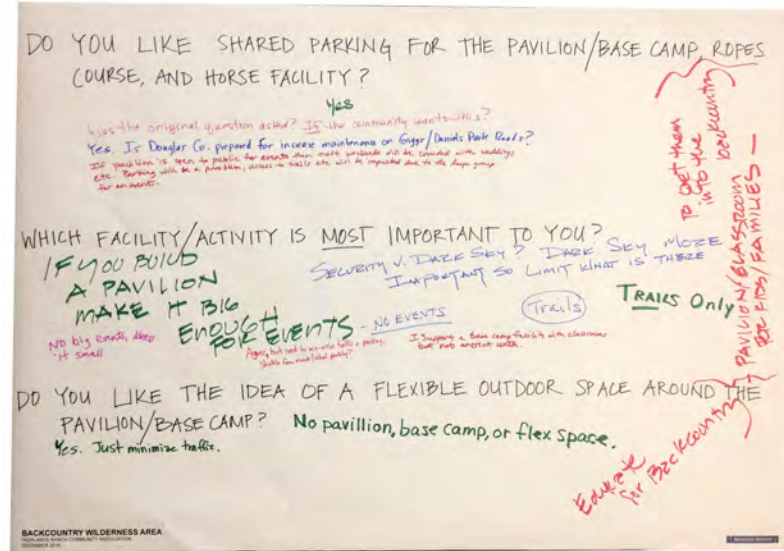 DO YOU LIKE SHARED PARKING FOR THE PAVILION/BASE CAMP, ROPES
COURSE, AND HORSE FACILITY?
Yes
Was the original question asked? If the community wants this?
Yes. Is Douglas Co. prepared for increase maintenance on Grigs/Daniels Park Roads?
If pavilion is open to public for events then most weekends will be crowded with weddings
etc. Parking will be a problem, access to trails etc. will be impacted due to the large group
for an event.
WHICH FACILITY/ACTIVITY IS MOST IMPORTANT TO YOU?
IF YOU BUILD
A PAVILION
MAKE IT BIG
ENOUGH
FOR EVENTS
- NO EVENTS
SECURITY V. DARK SKY? DARK SKY MORE
IMPORTANT SO LIMIT WHAT IS THERE
Trails
TRAILS Only
No big events, keep
it small
Agree, but need to
parking.
I support a base camp facility with classrooms
but not an event center.
DO YOU LIKE THE IDEA OF A FLEXIBLE OUTDOOR SPACE AROUND THE
PAVILION/BASE CAMP?
No pavillion, base camp, or flex space.
Yes. Just minimize traffic.
PAVILION/CLASSROOM
FOR KIDS/FAMILIES —
to get them
into the
backcountry
Educate
for Backcountry
BACKCOUNTRY WILDERNESS AREA
HIGHLANDS RANCH COMMUNITY ASSOCIATION